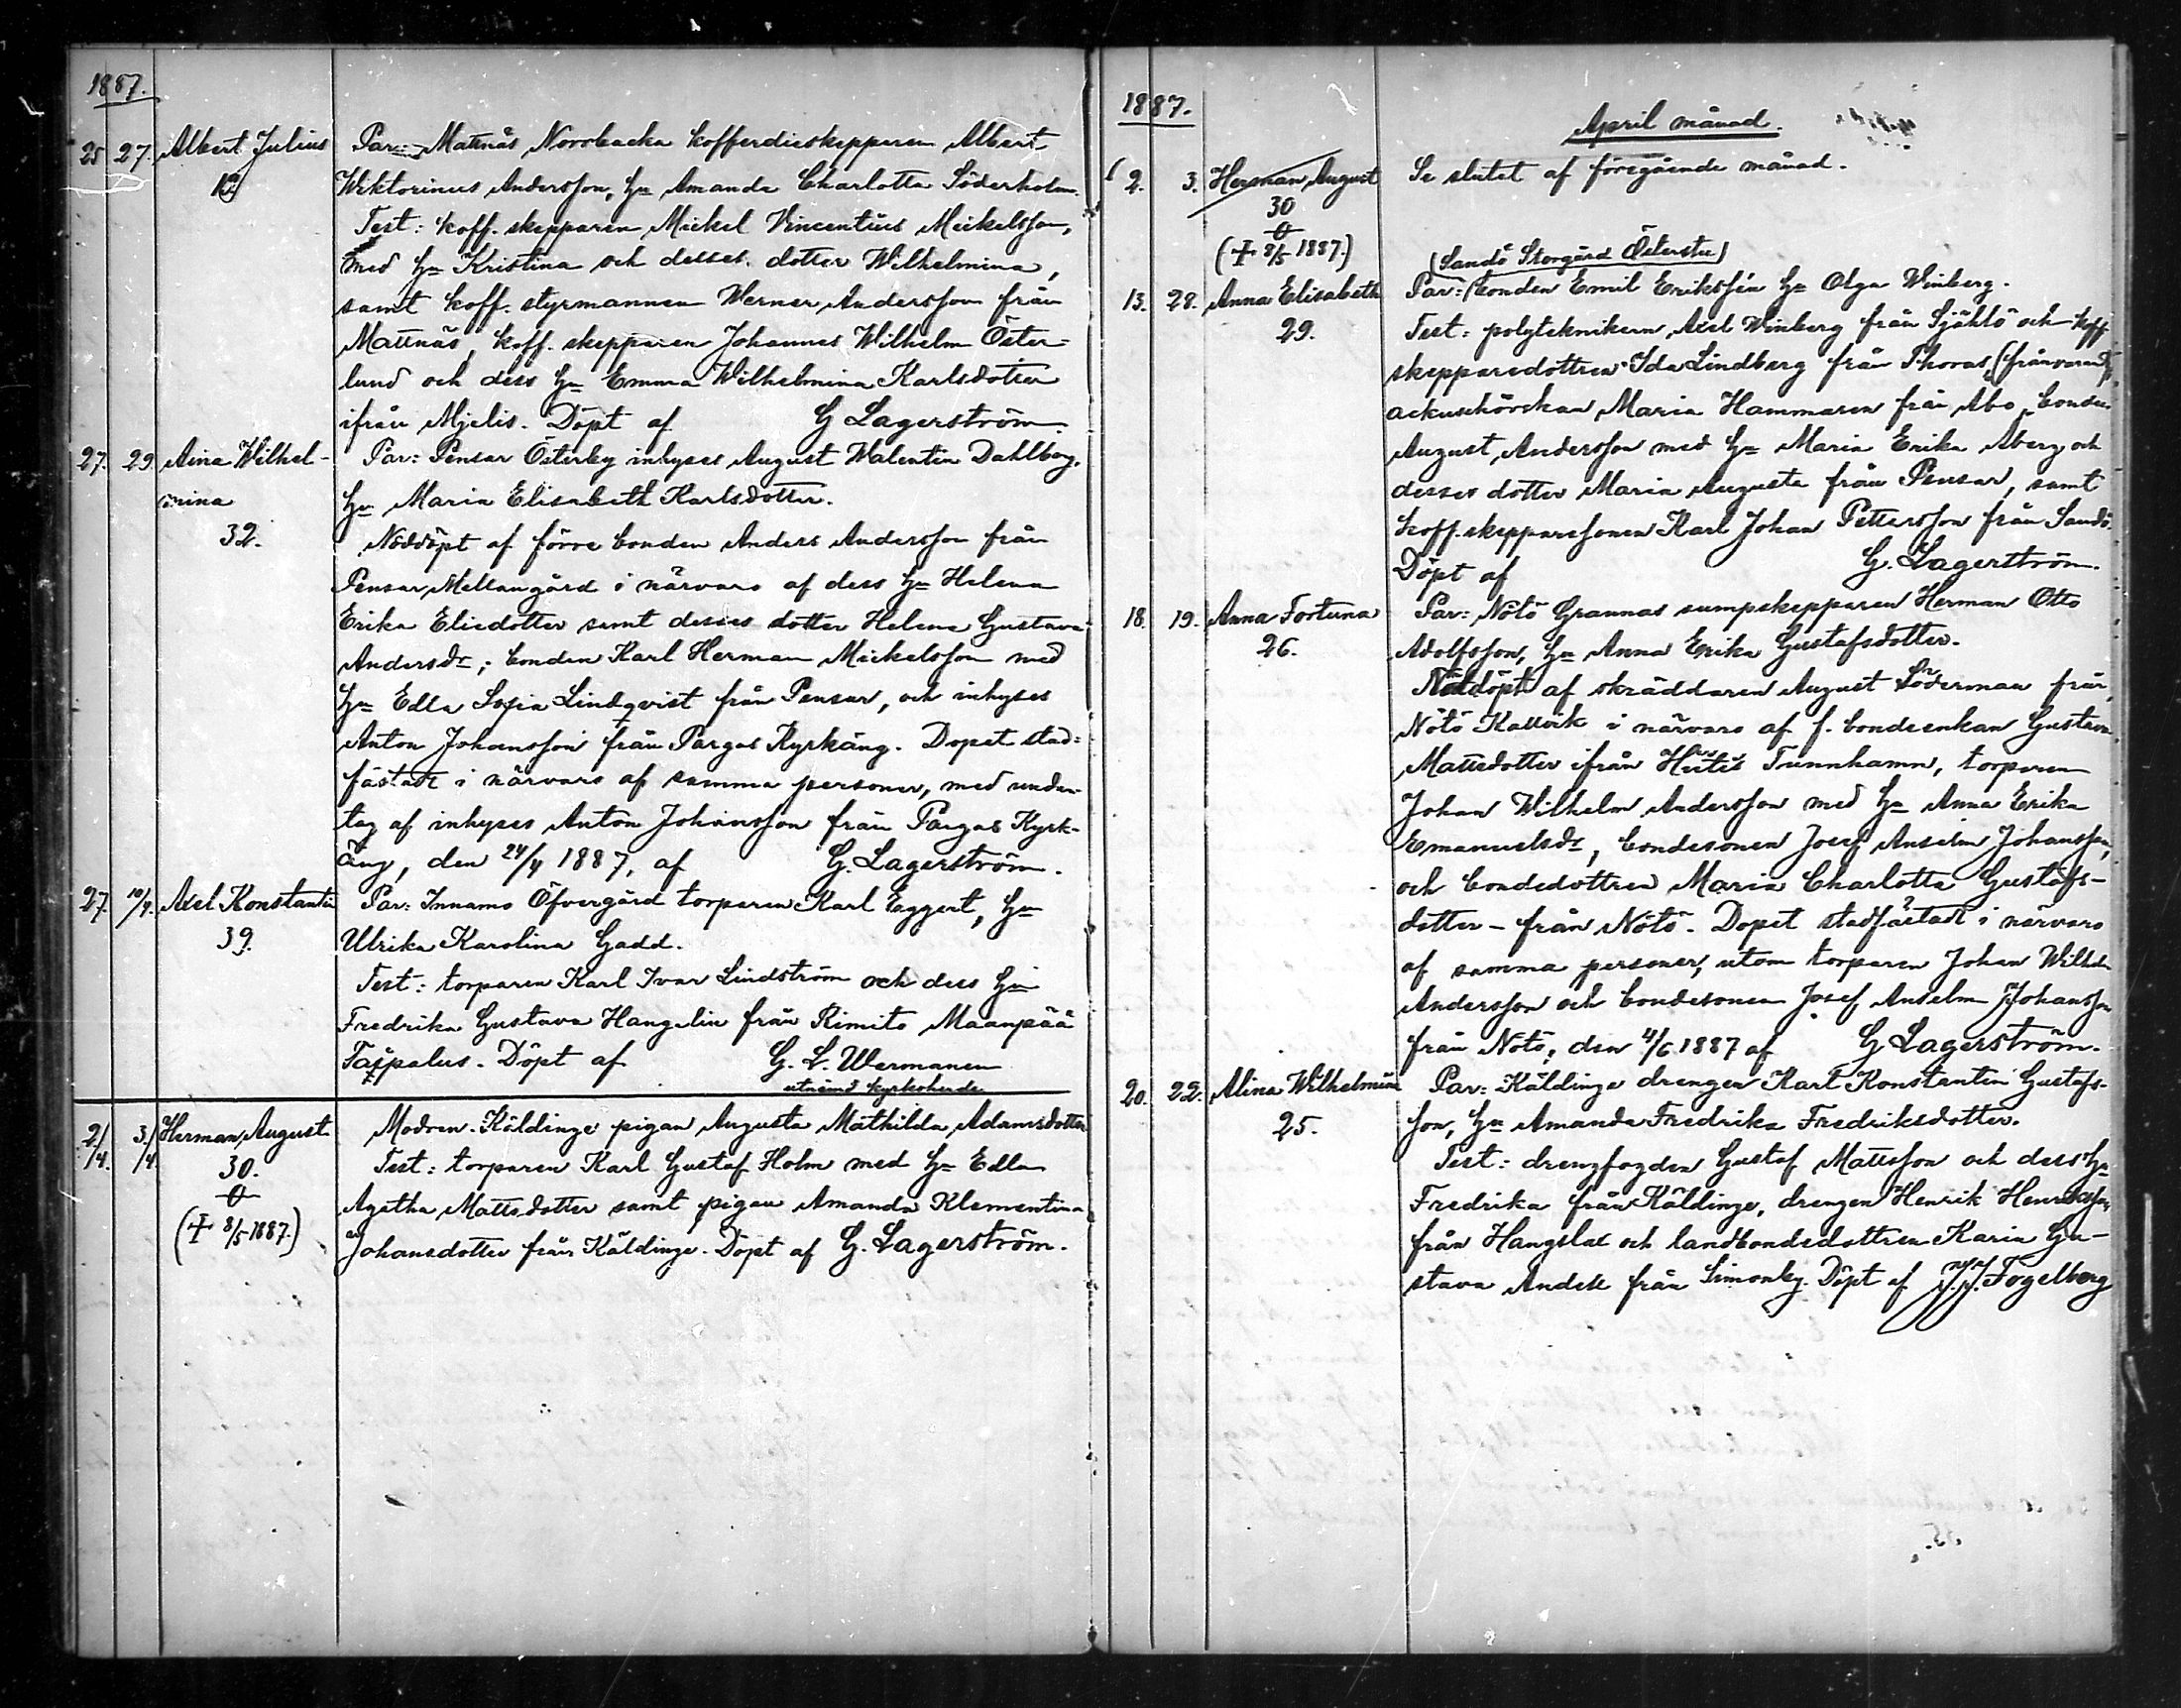 1887.
25 27. Albert Julius Par: Mattnäs Norrbacka kofferdieskepparen Albert
Wiktorinus Andersson, hu Amanda Charlotta Söderholm.
Test: koff. skepparen Mickel Vincentius Mickelsson,
med hu Kristina och desses dotter Wilhelmina,
samt koff. styrmannen Werner Andersson från
Mattnäs, koff. skepparen Johannes Wilhelm Öster-
lund och dess hu Emma Wilhelmina Karlsdotter
ifrån Mjelis. Döpt af G Lagerström.
27. 29. Aina Wilhel- Par: Pensar Österby inhyses August Walentin Dahlborg,
mina hu Maria Elisabeth Karlsdotter.
32. Nöddöpt af förre bonden Anders Andersson från
Pensar Mellangård i närvaro af dess hu Helena
Erika Eliedotter samt desses dotter Helena Gustava
Andersdr; bonden Karl Herman Mickelsson med
hu Edla Sofia Lindqvist från Pensar, och inhyses
Anton Johansson från Pargas Kyrkäng. Dopet stad-
fästadt i närvaro af samma personer, med undan-
tag af inhyses Anton Johansson från Pargas Kyrk-
äng, den 24/4 1887, af G. Lagerström.
27. 10/4. Axel Konstantin Par: Innamo Öfvergård torparen Karl Eggert, hu
39. Ulrika Karolina Gadd.
Test: torparen Karl Ivar Lindström och dess hu
Fredrika Gustava Hangelin från Rimito Maanpää
Taipalus. Döpt af G. L. Wermanen
utnämd kyrkoherde
2/4. 3/4 Herman August Modren. Käldinge pigan Augusta Mathilda Adamsdotter
30. Test: torparen Karl Gustaf Holm med hu Edla
Agatha Mattsdotter samt pigan Amanda Klementina
(† 8/5 1887.) Johansdotter från Käldinge. Döpt af G. Lagerström.
1887.
April månad.
2. 3. Herman August Se slutet af föregående månad.
30
(† 8/5 1887.)
(Sandö Storgård Österstu)
13. 28. Anna Elisabeth Par: bonden Emil Eriksson hu Olga Winberg.
29. Test: polyteknikern Axel Winberg från Själö och koff.
skepparedottren Ida Lindberg från Thoras, (frånvarande),
ackuschörskan Maria Hammaren från Åbo, bonden
August Andersson med hu Maria Erika Åberg och
desses dotter Maria Augusta från Pensar, samt
koff. skepparesonen Karl Johan Pettersson från Sandö.
Döpt af G. Lagerström.
18. 19. Anna Fortuna Par: Nötö Grannas sumpskepparen Herman Otto
26. Adolfsson, hu Anna Erika Gustafsdotter.
Nöddöpt af skräddaren August Söderman från
Nötö Kasvik i närvaro af f. bondeenkan Gustava
Mattsdotter ifrån Hitis Tunnhamn, torparen
Johan Wilhelm Andersson med hu Anna Erika
Emanuelsdr, bondesonen Josef Anselm Johansson,
och bondedottren Maria Charlotta Gustafs-
dotter - från Nötö. Dopet stadfästadt i närvaro
af samma personer, utom torparen Johan Wilhelm
Andersson och bondesonen Josef Anselm Johansson
från Nötö, den 4/6 1887 af G Lagerström.
20. 22. Alina Wilhelmina Par: Käldinge drengen Karl Konstantin Gustafs-
25. son, hu Amanda Fredrika Fredriksdotter.
Test: drengfogden Gustaf Mattsson och dess hu
Fredrika från Käldinge, drengen Henrik Henriksson
från Hangslax och landbondedottren Karin Gu-
stava Andell från Simonby. Döpt af Fogelberg